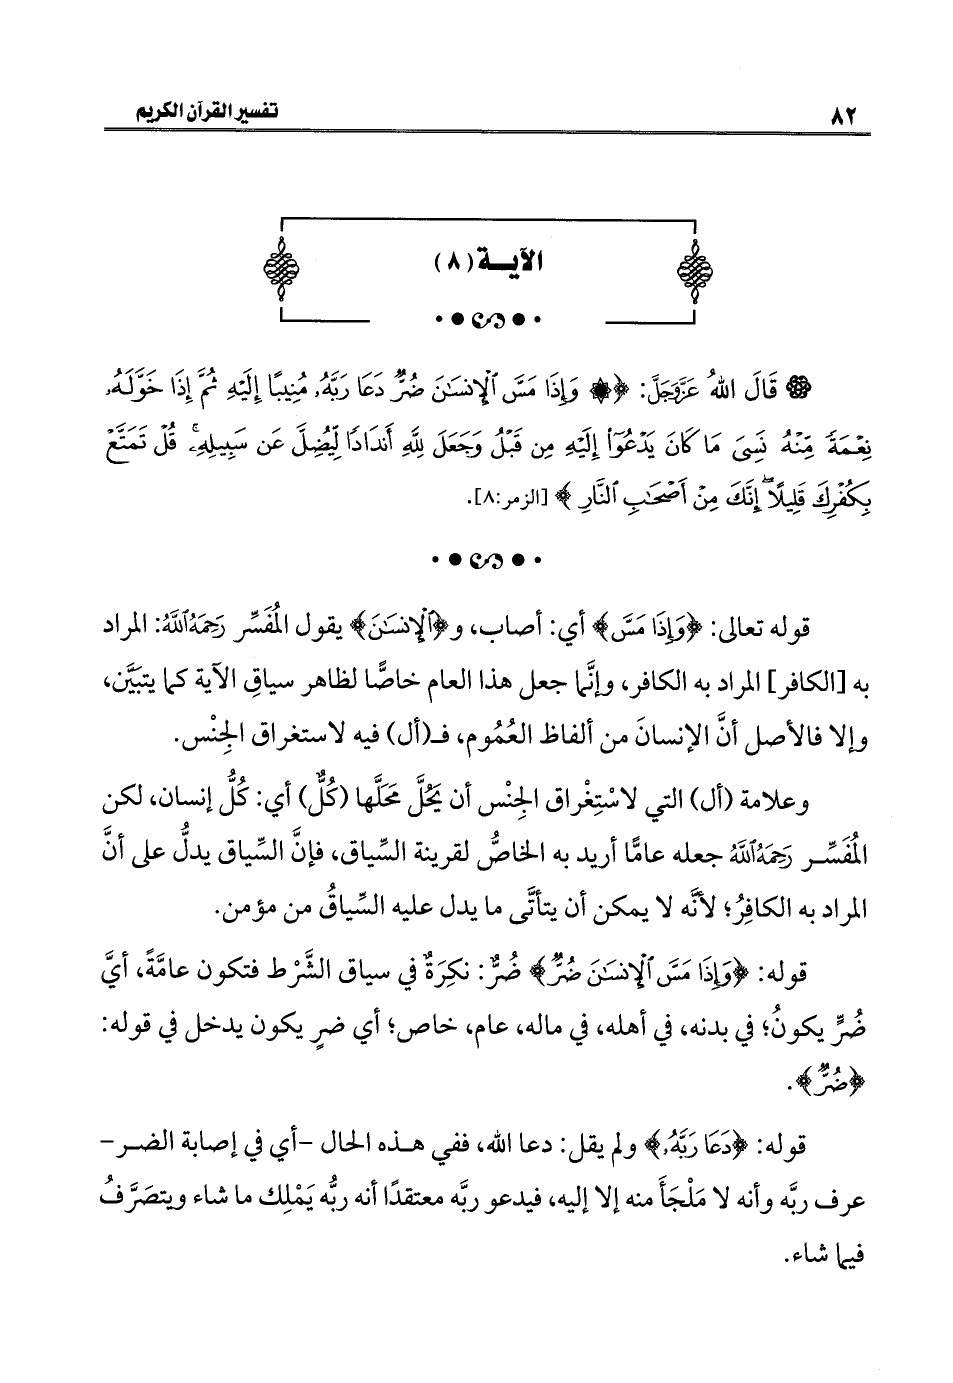 ٨٢ تفسير القرآن الكريم
الآيــة (٨)
قَالَ اللهُ عَزَّوَجَلَّ: ﴿ ۞ وَإِذَا مَسَّ ٱلْإِنسَٰنَ ضُرٌّ دَعَا رَبَّهُۥ مُنِيبًا إِلَيْهِ ثُمَّ إِذَا خَوَّلَهُۥ
نِعْمَةً مِّنْهُ نَسِىَ مَا كَانَ يَدْعُوٓا۟ إِلَيْهِ مِن قَبْلُ وَجَعَلَ لِلَّهِ أَندَادًا لِّيُضِلَّ عَن سَبِيلِهِۦۚ قُلْ تَمَتَّعْ
بِكُفْرِكَ قَلِيلًاۖ إِنَّكَ مِنْ أَصْحَٰبِ ٱلنَّارِ ﴾ [الزمر:٨].
قوله تعالى: ﴿وَإِذَا مَسَّ﴾ أي: أصاب، و﴿ٱلْإِنسَٰنَ﴾ يقول المُفَسِّر رَحِمَهُ ٱللَّهُ: المراد
به [الكافر] المراد به الكافر، وإنَّما جعل هذا العام خاصًّا لظاهر سياقِ الآية كما يتبَيَّن،
وإلا فالأصل أنَّ الإنسانَ من ألفاظ العُمُوم، فـ(أل) فيه لاستغراق الجِنْس.
وعلامة (أل) التي لاسْتِغْراق الجِنْس أن يَحُلَّ مَحَلَّها (كُلٌّ) أي: كُلُّ إنسان، لكن
المُفَسِّــر رَحِمَهُ ٱللَّهُ جعله عامًّا أريد به الخاصُّ لقرينة السِّياق، فإنَّ السِّياق يدلُّ على أنَّ
المراد به الكافِرُ؛ لأنَّه لا يمكن أن يتأتَّى ما يدل عليه السِّياقُ من مؤمن.
قوله: ﴿وَإِذَا مَسَّ ٱلْإِنسَٰنَ ضُرٌّ﴾ ضُرٌّ: نكِرَةٌ في سياق الشَّرْط فتكون عامَّةً، أيَّ
ضُرٍّ يكونُ؛ في بدنه، في أهله، في ماله، عام، خاص؛ أي ضرٍ يكون يدخل في قوله:
﴿ضُرٌّ﴾.
قوله: ﴿دَعَا رَبَّهُۥ﴾ ولم يقل: دعا الله، ففي هـذه الحال -أي في إصابة الضـر-
عرف ربَّه وأنه لا مَلْجَأَ منه إلا إليه، فيدعو ربَّه معتقدًا أنه ربُّه يَمْلِك ما شاء ويتصَرَّفُ
فيما شاء.